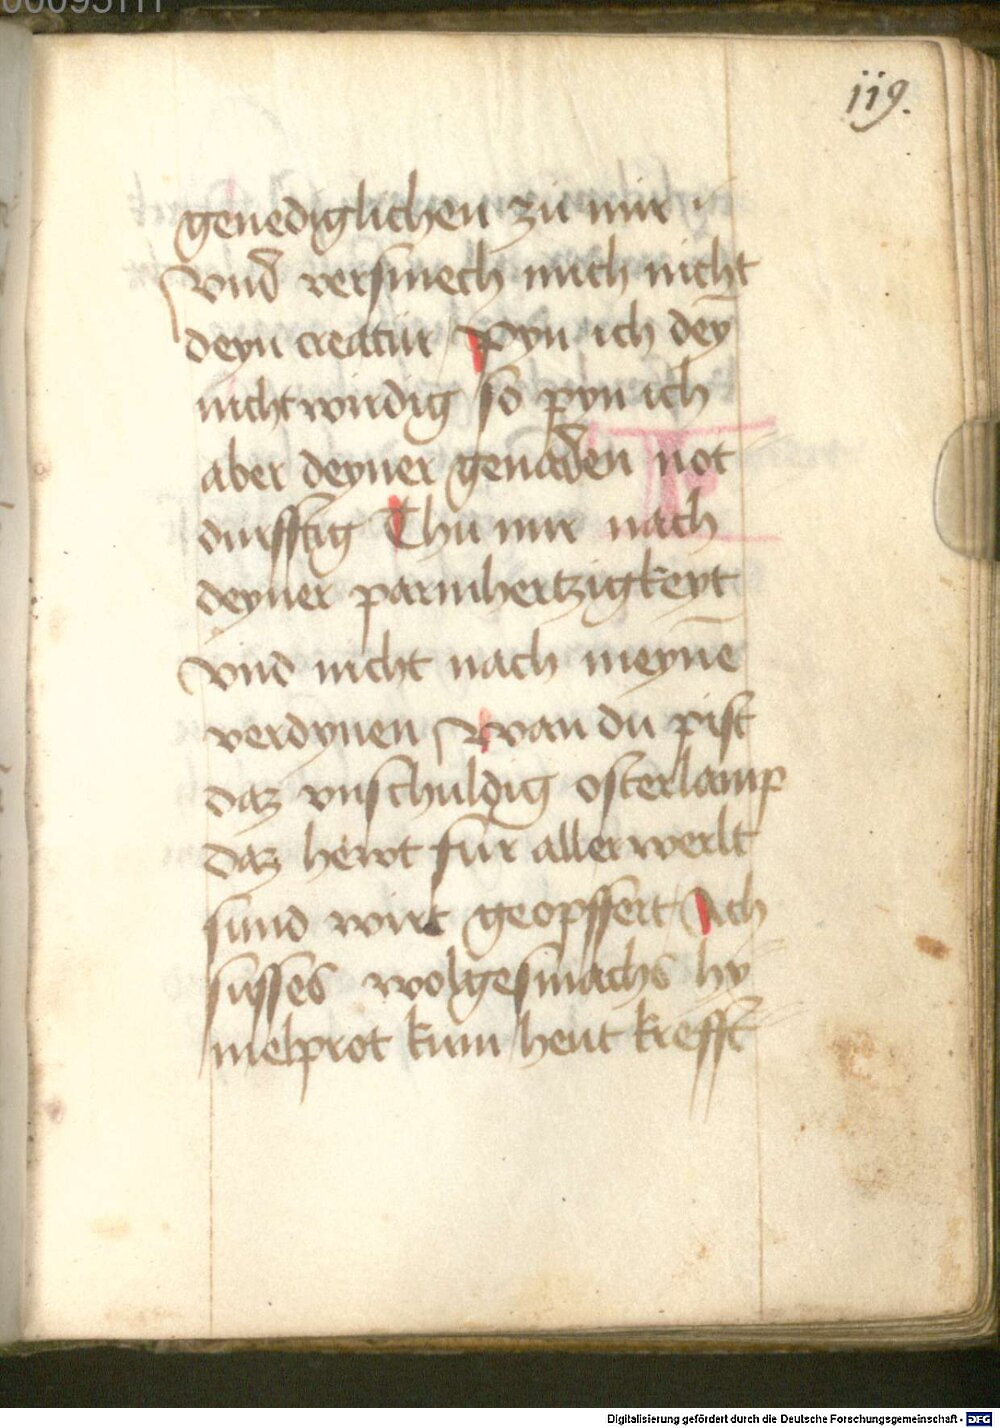 119.
genediglichen zu mir ·
vnd̄ versmech mich nicht
deyn creatur Pyn ich dey̅
nicht wirdig so pyn ich
aber deyner genad̄en not
durfftig Thu mir nach
deyner parmhertzigkeyt
vnd nicht nach meyne̅
verdynen wan du pist
daz vnschuldig osterlamp
daz hewt fur aller werlt
sund wirt geopffert Ach
susses wolgesmachs hy
melprot kum heut krefft
Digitalisierung gefördert durch die Deutsche Forschungsgemeinschaft - DFG